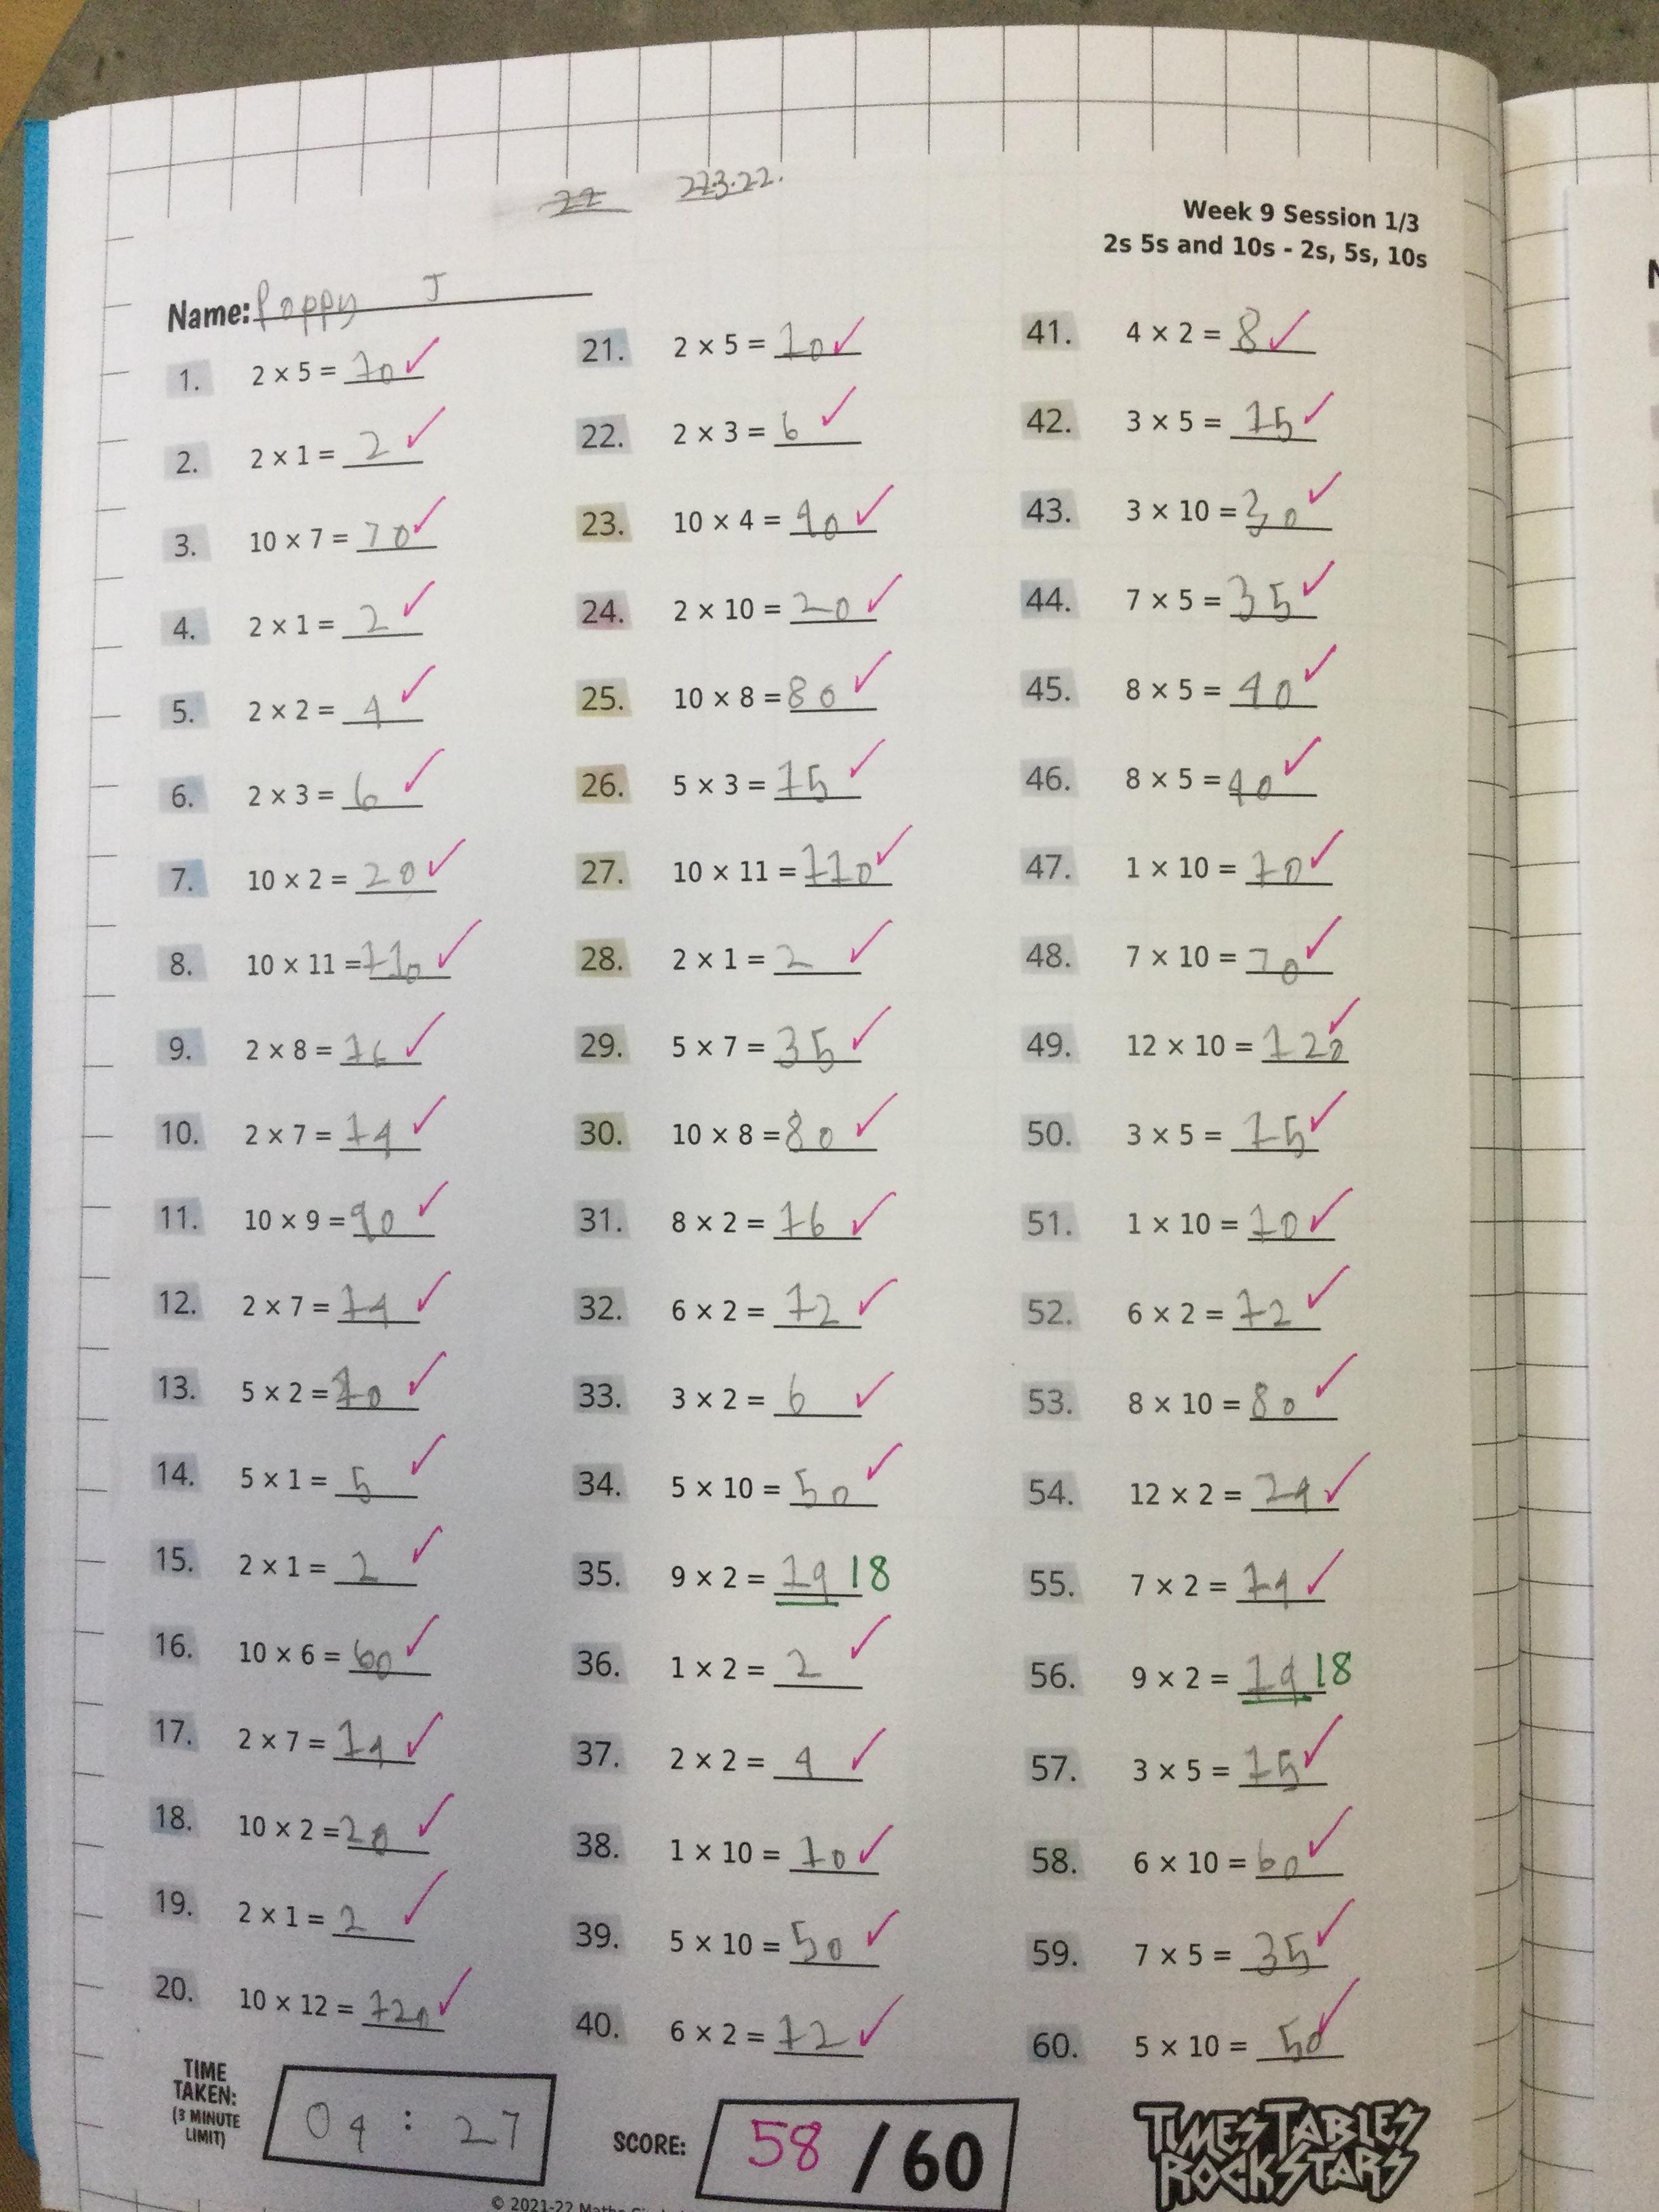 22 22.3.22.
Week 9 Session 1/3
2s 5s and 10s - 2s, 5s, 10s
Name: Poppy J
1. 2 × 5 = 10 ✓
2. 2 × 1 = 2 ✓
3. 10 × 7 = 70 ✓
4. 2 × 1 = 2 ✓
5. 2 × 2 = 4 ✓
6. 2 × 3 = 6 ✓
7. 10 × 2 = 20 ✓
8. 10 × 11 = 110 ✓
9. 2 × 8 = 16 ✓
10. 2 × 7 = 14 ✓
11. 10 × 9 = 90 ✓
12. 2 × 7 = 14 ✓
13. 5 × 2 = 10 ✓
14. 5 × 1 = 5 ✓
15. 2 × 1 = 2 ✓
16. 10 × 6 = 60 ✓
17. 2 × 7 = 14 ✓
18. 10 × 2 = 20 ✓
19. 2 × 1 = 2 ✓
20. 10 × 12 = 120 ✓
21. 2 × 5 = 10 ✓
22. 2 × 3 = 6 ✓
23. 10 × 4 = 40 ✓
24. 2 × 10 = 20 ✓
25. 10 × 8 = 80 ✓
26. 5 × 3 = 15 ✓
27. 10 × 11 = 110 ✓
28. 2 × 1 = 2 ✓
29. 5 × 7 = 35 ✓
30. 10 × 8 = 80 ✓
31. 8 × 2 = 16 ✓
32. 6 × 2 = 12 ✓
33. 3 × 2 = 6 ✓
34. 5 × 10 = 50 ✓
35. 9 × 2 = 19 18
36. 1 × 2 = 2 ✓
37. 2 × 2 = 4 ✓
38. 1 × 10 = 10 ✓
39. 5 × 10 = 50 ✓
40. 6 × 2 = 12 ✓
41. 4 × 2 = 8 ✓
42. 3 × 5 = 15 ✓
43. 3 × 10 = 30 ✓
44. 7 × 5 = 35 ✓
45. 8 × 5 = 40 ✓
46. 8 × 5 = 40 ✓
47. 1 × 10 = 10 ✓
48. 7 × 10 = 70 ✓
49. 12 × 10 = 120 ✓
50. 3 × 5 = 15 ✓
51. 1 × 10 = 10 ✓
52. 6 × 2 = 12 ✓
53. 8 × 10 = 80 ✓
54. 12 × 2 = 24 ✓
55. 7 × 2 = 14 ✓
56. 9 × 2 = 19 18
57. 3 × 5 = 15 ✓
58. 6 × 10 = 60 ✓
59. 7 × 5 = 35 ✓
60. 5 × 10 = 50 ✓
TIME
TAKEN:
(3 MINUTE
LIMIT)
04 : 27
SCORE: 58 / 60
TIMES TABLES
ROCK STARS
© 2021-22 Maths